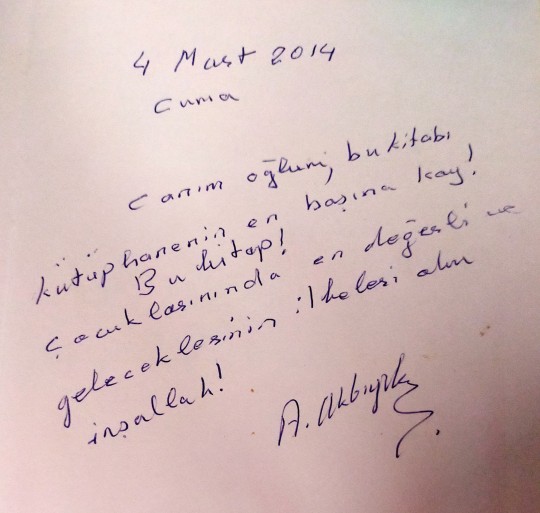 4 Mart 2014
Cuma
Canım oğlum, bu kitabı
kütüphanenin en başına koy!
Bu kitap!
Çocuklarınında en değerli ve
geleceklerinin ilkeleri olur
inşallah!
A. Akbıyık